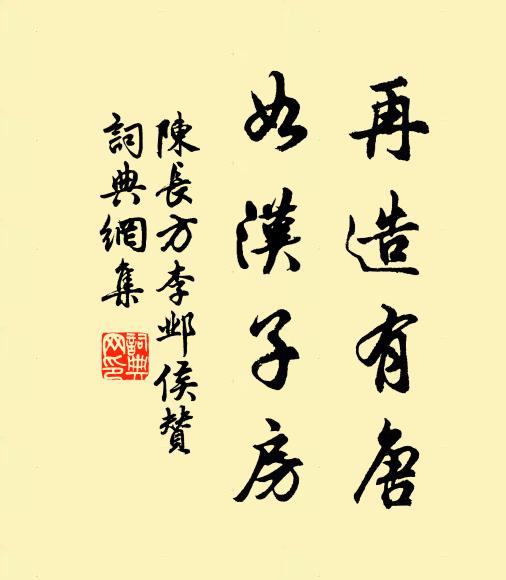 再造有唐
如漢子房
陳長方李鄴侯贊
詞典網集
詞典网印